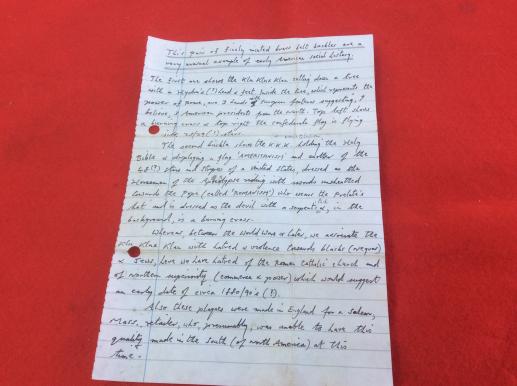 This pair of finely cast brass belt buckles are a
very unusual example of early American social history.
The first one shows the Klu Klux Klan cutting down a tree
with a Hydra's(?) head & feet. Inside the tree, which represents the
power of , are 3 heads with features suggesting, I
believe, 3 American presidents from the North. Top left shows
a burning cross & top right the confederate flag is flying
The second buckle shows the K K K holding the Holy
Bible & displaying a flag 'AMERICANISM' and another of the
48(?) stars and stripes of a United States, dressed as the
Horseman of the Apocalypse riding with swords unsheathed
towards the Pope (called 'ROMANISM') who wears the Prelate's
hat and is dressed as the devil with a serpent's &, in the
background, is a burning cross.
Whereas, between the World Wars & later, we associate the
Klu Klux Klan with hatred & violence towards blacks (negroes)
& Jews, here we have hatred of the Roman Catholic church and
of Northern superiority (commerce & power) which would suggest
an early date of circa 1880/90's (?).
Also these plaques were made in England for a Salem,
Mass., retailer, who, presumably, was unable to have this
quality made in the South (of North America) at this
time.